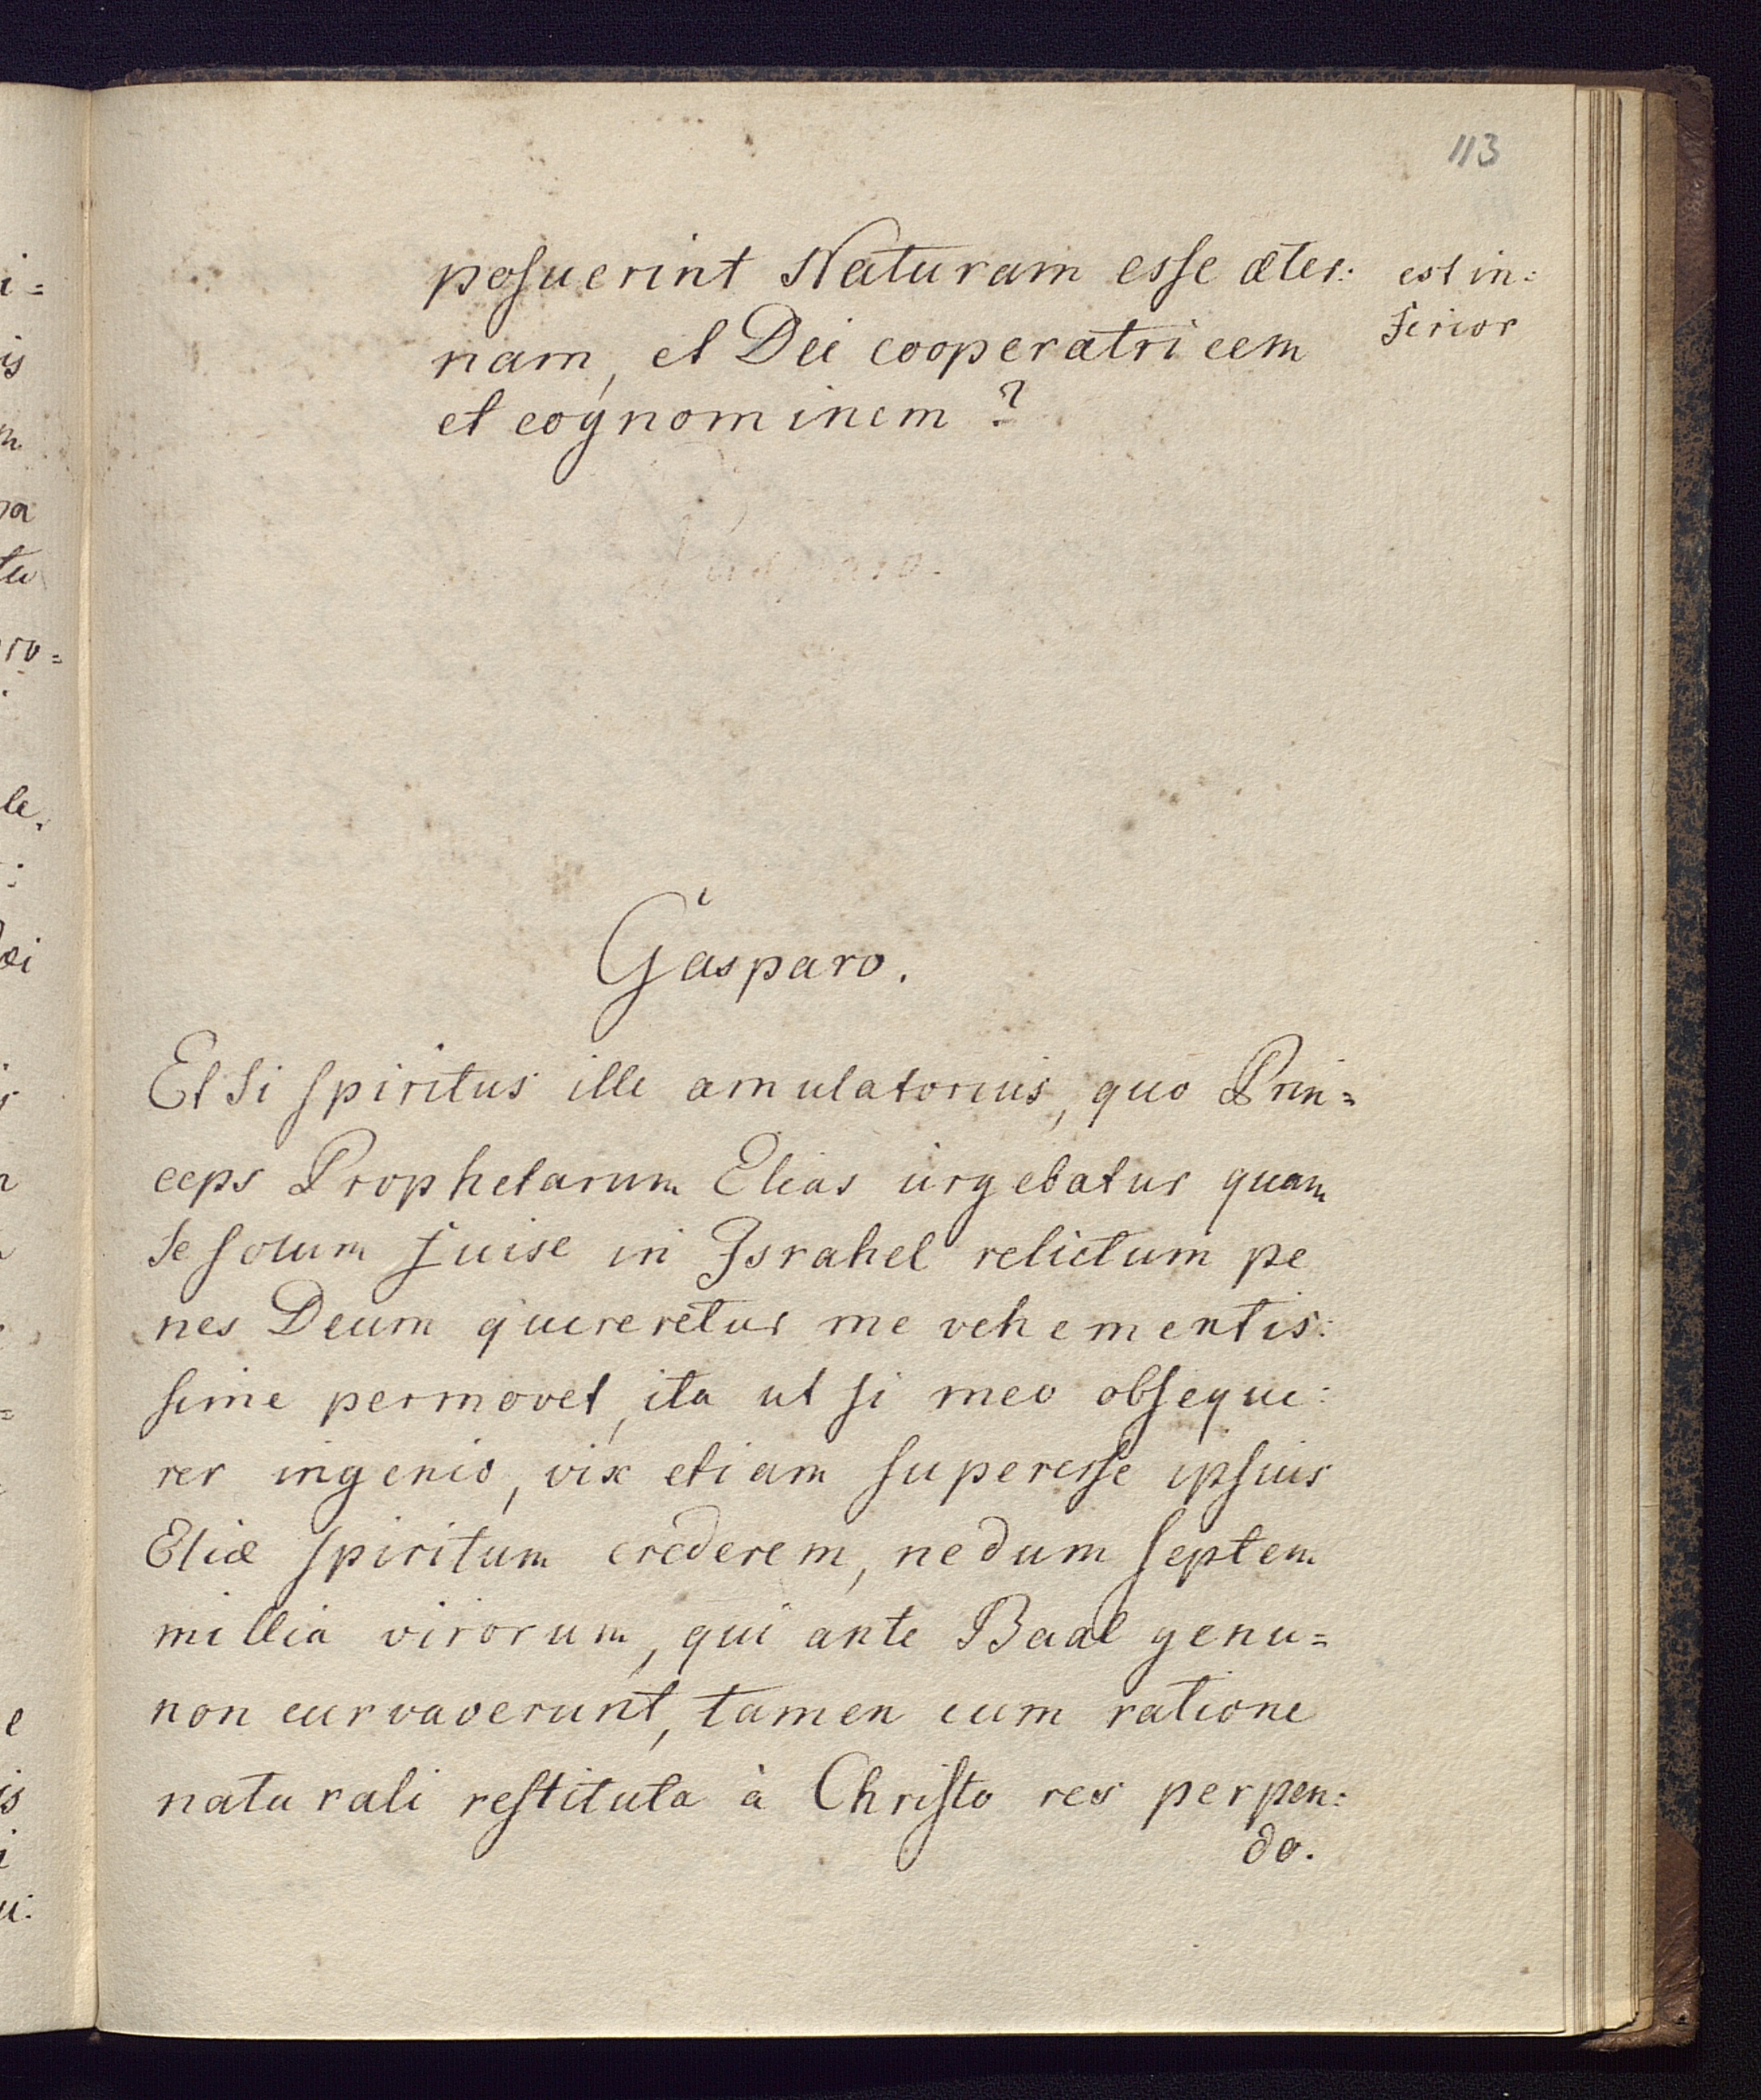 113
posuerint Naturam esse æter: est in:
nam, et Dei cooperatricem ferior
et cognominem?
Gasparo.
Etsi spiritus ille amulatorius, quo Prin=
ceps Prophetarum Elias urgebatur quam
se solum fuise in Israhel relictum pe
nes Deum quereretur me vehementis:
sime permovet, ita ut si meo obseque:
rer ingenio, vix etiam superesse ipsius
Eliæ spiritum crederem, nedum septem
millia virorum, qui ante Baal genu=
non curvaverunt, tamen cum ratione
naturali restituta à Christo res perpen:
do.